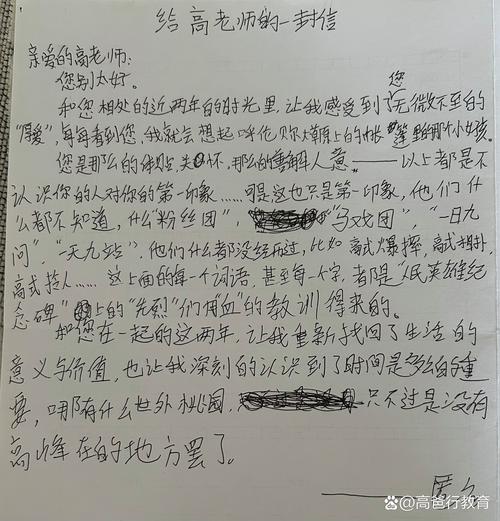 给高老师的一封信
亲爱的高老师:
您别太好。
和您相处的近两年的时光里,让我感受到了您无微不至的
"厚爱",每每看到您,我就会想起呼伦贝尔大草原上的帐篷里的那个小女孩。
您是那么的体贴,关怀,那么的善解人意——以上都是不
认识你的人对你的第一印象……可是这也只是第一印象,他们什
么都不知道,什么"粉丝团","马戏团","一日九
问","一天九站",他们什么都没经历过,比如高式爆摔,高式相扑,
高式拎人……这上面的每一个词语,甚至每一个字,者是"人民英雄纪
念碑"上的"先烈"们"血"的教训得来的。
和您在一起的这两年,让我重新找回了生活的
意义与价值,也让我深刻的认识到了时间是多么的重
要,哪有什么世外桃园,只不过是没有
高峰在的地方罢了。
——匿名
百家号@高爸行教育